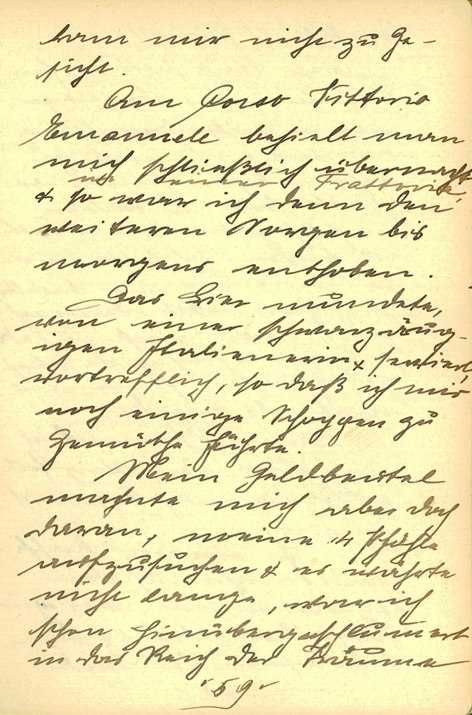 kam mir nicht zu Ge-
sicht.
Am Corso Vittorio
Emanuele behielt man
mich schließlich übernacht
in einer Trattoria
& so war ich denn den
weiteren Sorgen bis
morgens enthoben.
Das Bier mundete,
von einer schwarzäug-
igen Italienerin serviert
vortrefflich, so daß ich mir
noch einige Schoppen zu
Gemüthe führte.
Mein Geldbeutel
mahnte mich aber doch
daran, meine
aufzusuchen & es währte
nicht lange, war ich
schon hinübergeschlummert
in das Reich der Träume
59